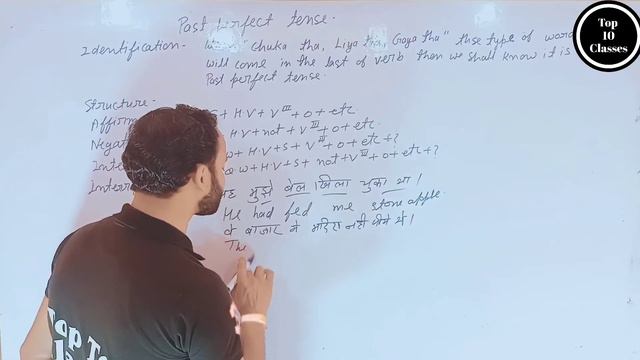 Past perfect tense.
Identification - "Chuka tha, Liya tha, Gaya tha" these type of word
will come in the last of verb then we shall know it is
Past perfect tense.
Structure -
S + H.V + VIII + O + etc
H.V + not + VIII + O + etc
W + H.V + S + VIII + O + etc + ?
W + H.V + S + not + VIII + O + etc + ?
मुझे बेल खिला चुका था।
He had fed me stone apple.
वे बाजार मे मदिरा नही पीये थे।
The
Top
10
Classes
Top Te